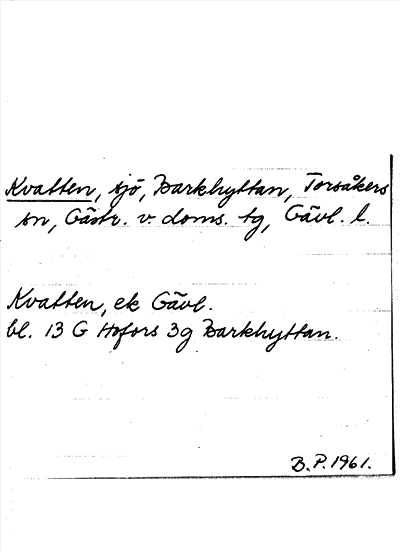 Kvatten, sjö, Barkhyttan, Torsåkers
sn, Gästr. v. doms. tg, Gävl. l.
Kvatten, ek Gävl.
bl. 13 G Hofors 3g Barkhyttan.
B.P. 1961.